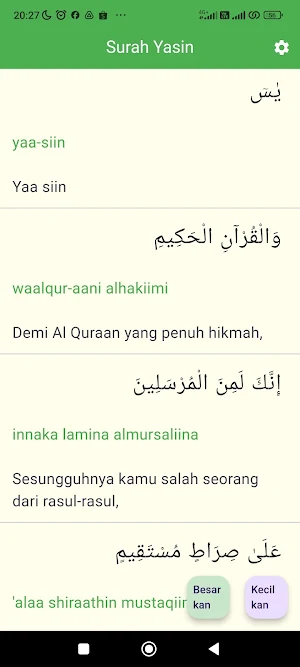 20:27
56
Surah Yasin
يٰسۤ
yaa-siin
Yaa siin
وَالْقُرْآنِ الْحَكِيمِ
waalqur-aani alhakiimi
Demi Al Quraan yang penuh hikmah,
إِنَّكَ لَمِنَ الْمُرْسَلِينَ
innaka lamina almursaliina
Sesungguhnya kamu salah seorang
dari rasul-rasul,
عَلَىٰ صِرَاطٍ مُسْتَقِيمٍ
'alaa shiraathin mustaqiim
Besar
kan
Kecil
kan